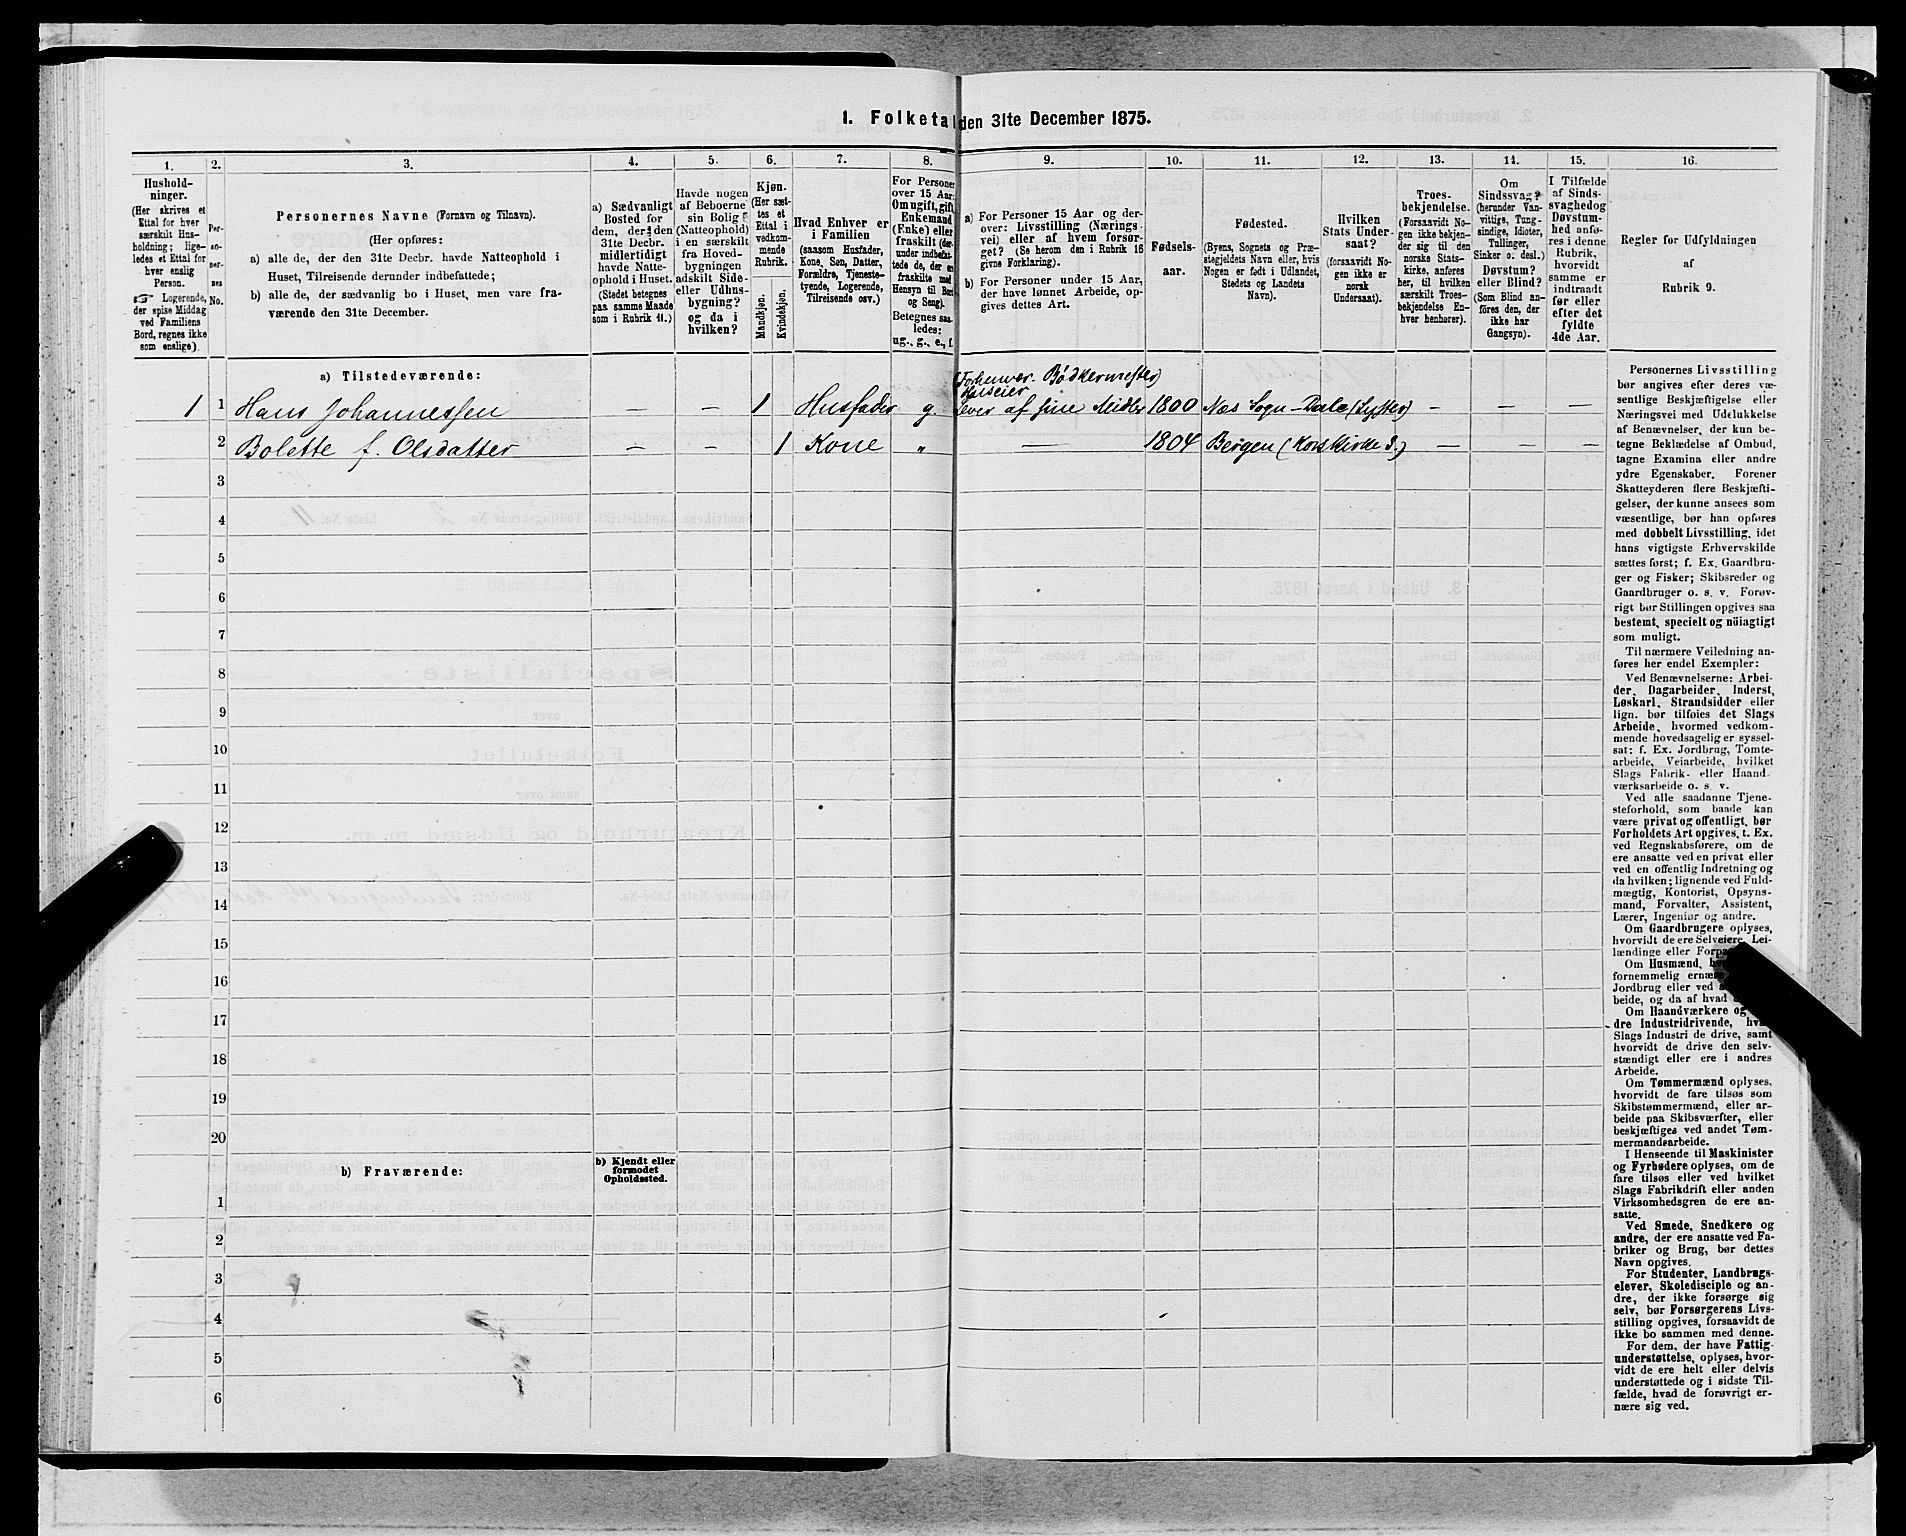 1. Folketal den 31te December 1875.
1. 2. 3. 4. 5. 6. 7. 8. 9. 10. 11. 12. 13. 14. 15. 16.
Hushold-
ninger.
(Her skrives et
Ettal for hver
særskilt Hus-
holdning; lige-
ledes et Ettal for
hver enslig
Person.
☞ Logerende,
der spise Middag
ved Familiens
Bord, regnes ikke
som enslige).
Per-
so-
ner-
nes
No.
Personernes Navne (Fornavn og Tilnavn).
(Her opføres:
a) alle de, der den 31te Decbr. havde Natteophold i
Huset, Tilreisende derunder indbefattede;
b) alle de, der sædvanlig bo i Huset, men vare fra-
værende den 31te December.
a) Sædvanligt
Bosted for
dem, der den
31te Decbr.
midlertidigt
havde Natte-
ophold i Huset.
(Stedet betegnes
paa samme Maade
som i Rubrik 11.)
Havde nogen
af Beboerne
sin Bolig
(Natteophold)
i en særskilt
fra Hoved-
bygningen
adskilt Side-
eller Udhus-
bygning?
og da i
hvilken?
Kjøn.
(Her sæt-
tes et
Ettal i
vedkom-
mende
Rubrik.
Mandkjøn.
Kvindekjøn.
Hvad Enhver er
i Familien
(saasom Husfader,
Kone, Søn, Datter,
Forældre, Tjeneste-
tyende, Logerende,
Tilreisende osv.)
For Personer
over 15 Aar:
Om ugift, gift,
Enkemand
(Enke) eller
fraskilt (der-
under indbefat-
tede de, der er
fraskilte med
Hensyn til Bord
og Seng).
Betegnes saa-
ledes:
ug., g., e., f.
a) For Personer 15 Aar og der-
over: Livsstilling (Nærings-
vei) eller af hvem forsør-
get? (Se herom den i Rubrik 16
givne Forklaring).
b) For Personer under 15 Aar,
der have lønnet Arbeide, op-
gives dettes Art.
Fødsels-
aar.
Fødested.
(Byens, Sognets og Præ-
stegjeldets Navn eller, hvis
Nogen er født i Udlandet,
Stedets og Landets
Navn).
Hvilken
Stats Under-
saat?
(forsaavidt No-
gen ikke er
norsk
Undersaat).
Troes-
bekjendelse.
(Forsaavidt No-
gen ikke bekjen-
der sig til den
norske Stats-
kirke, anføres
her, til hvilken
særskilt Troes-
bekjendelse En-
hver henhører).
Om
Sindssvag?
(herunder Van-
vittige, Tung-
sindige, Idioter,
Tullinger,
Sinker o. desl.)
Døvstum?
eller Blind?
(Som Blind an-
føres den, der
ikke har
Gangsyn).
I Tilfælde
af Sinds-
svaghed og
Døvstum-
hed anfø-
res i denne
Rubrik,
hvorvidt
samme er
indtraadt
før eller
efter det
fyldte
4de Aar.
Regler for Udfyldningen
af
Rubrik 9.
a) Tilstedeværende:
(Forhenvær. Bødkermester)
Huseier
1 1 Hans Johannessen — — 1 Husfader g. Lever af sine Midler 1800 Næs Sogn - Dale (Lyster) — — —
2 Bolette f. Olsdatter — — 1 Kone „ — 1804 Bergen (Korskirke S.) — — —
3
4
5
6
7
8
9
10
11
12
13
14
15
16
17
18
19
20
b) Fraværende:
b) Kjendt eller
formodet
Opholdssted.
1
2
3
4
5
6
Personernes Livsstilling
bør angives efter deres væ-
sentlige Beskjæftigelse eller
Næringsvei med Udelukkelse
af Benævnelser, der kun be-
tegne Beklædelse af Ombud,
tagne Examina eller andre
ydre Egenskaber. Forener
Skatteyderen flere Beskjæfti-
gelser, der kunne ansees som
væsentlige, bør han opføres
med dobbelt Livsstilling, idet
hans vigtigste Erhvervskilde
sættes først; f. Ex. Gaardbru-
ger og Fisker; Skibsreder og
Gaardbruger o. s. v. Forøv-
rigt bør Stillingen opgives saa
bestemt, specielt og nöiagtigt
som muligt.
Til nærmere Veiledning an-
føres her endel Exempler:
Ved Benævnelserne: Arbei-
der, Dagarbeider, Inderst,
Løskarl, Strandsidder eller
lign. bør tilføies det Slags
Arbeide, hvormed vedkom-
mende hovedsagelig er syssel-
sat: f. Ex. Jordbrug, Tomte-
arbeide, Veiarbeide, hvilket
Slags Fabrik- eller Haand-
værksarbeide o. s. v.
Ved alle saadanne Tjene-
steforhold, som baade kan
være privat og offentligt, bør
Forholdets Art opgives, t. Ex.
ved Regnskabsførere, om de
ere ansatte ved en privat eller
ved en offentlig Indretning og
da hvilken; lignende ved Fuld-
mægtig, Kontorist, Opsyns-
mand, Forvalter, Assistent,
Lærer, Ingeniør og andre.
Om Gaardbrugere oplyses,
hvorvidt de ere Selveiere, Lei-
lændinge eller
Om Husmænd,
fornemmelig
Jordbrug eller ved
beide, og da af hvad
Om Haandværkere og
dre Industridrivende,
Slags Industri de drive, samt
hvorvidt de drive den selv-
stændigt eller ere i andres
Arbeide.
Om Tømmermænd oplyses,
hvorvidt de fare tilsøs som
Skibstømmermænd, eller ar-
beide paa Skibsværfter, eller
beskjæftiges ved andet Tøm-
mermandsarbeide.
I Henseende til Maskinister
og Fyrbødere oplyses, om de
fare tilsøs eller ved hvilket
Slags Fabrikdrift eller anden
Virksomhedsgren de ere an-
satte.
Ved Smede, Snedkere og
andre, der ere ansatte ved Fa-
briker og Brug, bør dettes
Navn opgives.
For Studenter, Landbrugs-
elever, Skoledisciple og an-
dre, der ikke forsørge sig
selv, bør Forsørgerens Livs-
stilling opgives, forsaavidt de
ikke bo sammen med denne.
For dem, der have Fattig-
understøttelse, oplyses, hvor-
vidt de ere helt eller delvis
understøttede og i sidste Til-
fælde, hvad de forøvrigt er-
nære sig ved.